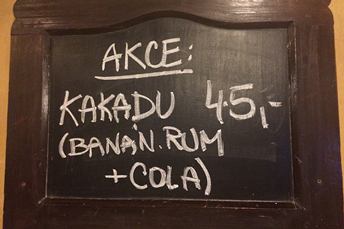 AKCE:
KAKADU 45,-
(BANÁN.RUM
+COLA)